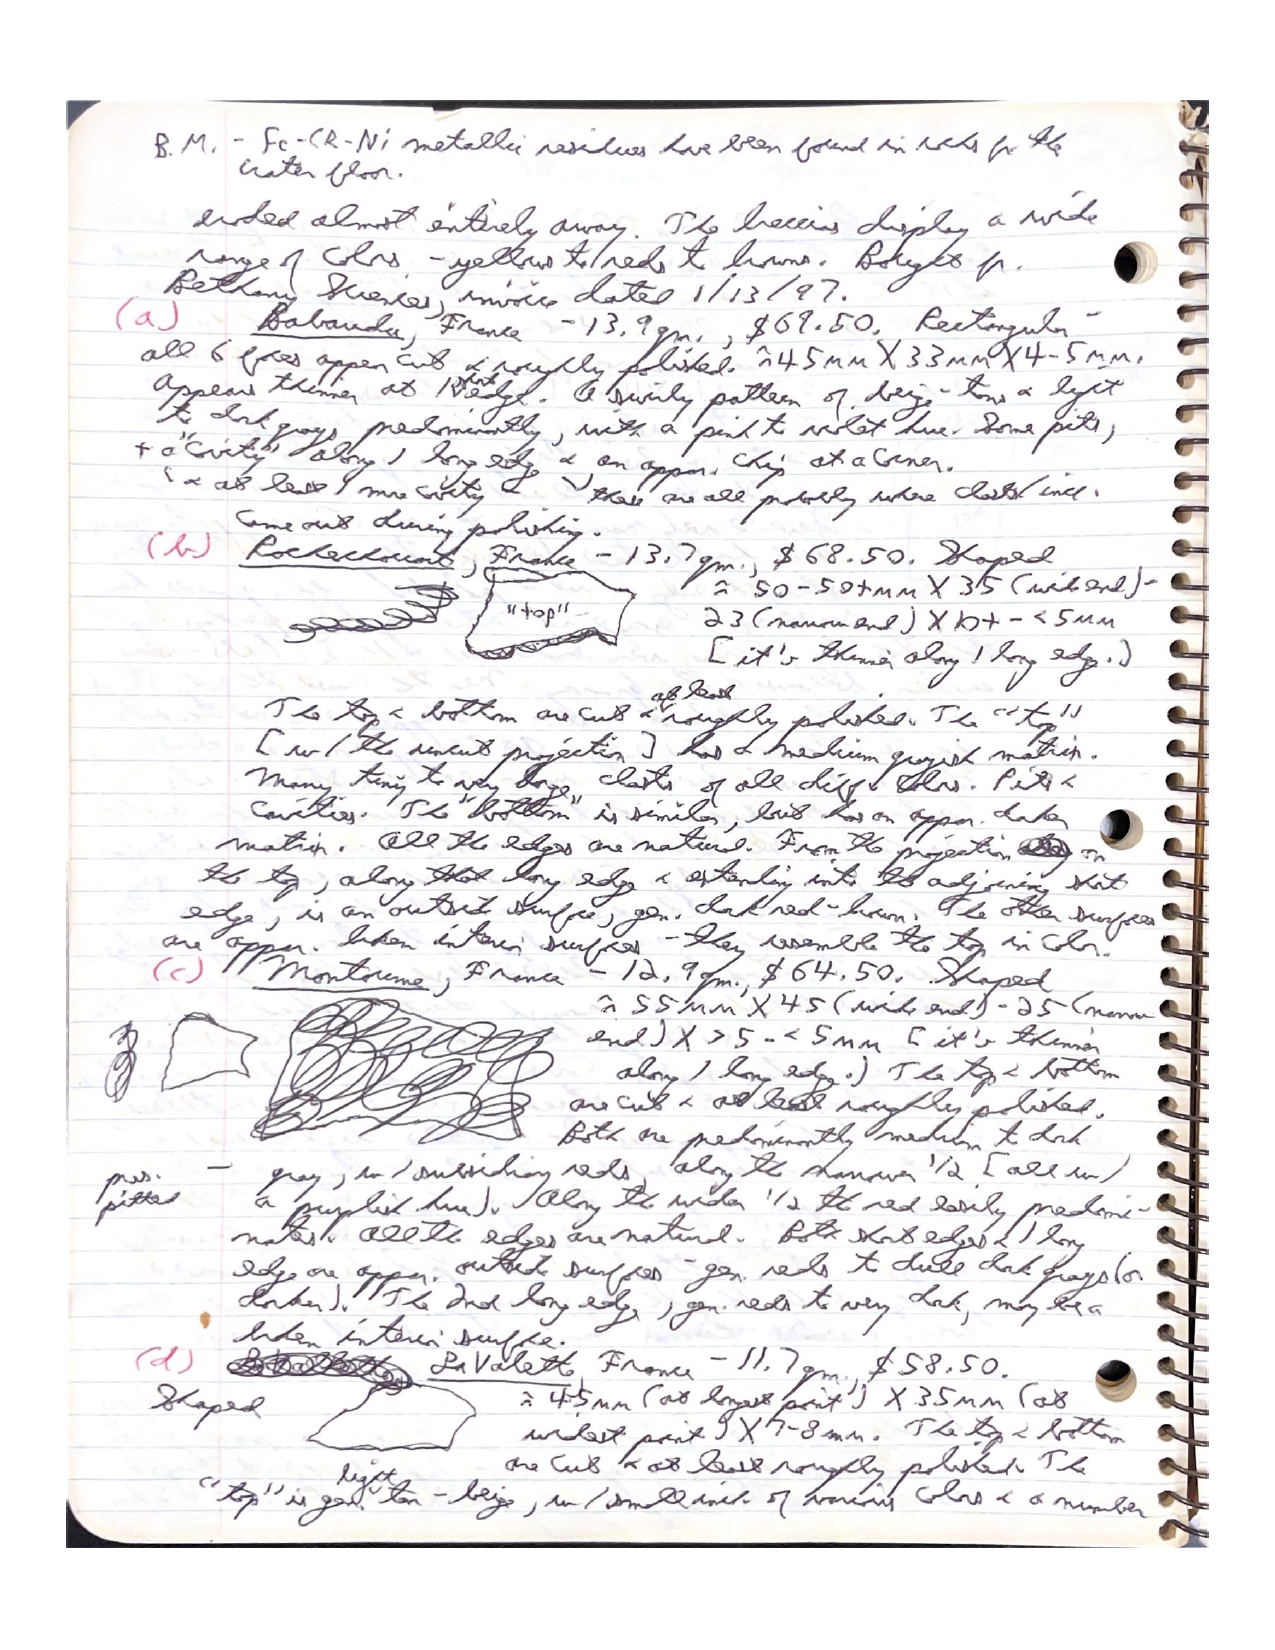 B.M. - Fe-CR-Ni metallic residues have been found in rocks fr. the
crater floor.
eroded almost entirely away. The breccias display a wide
range of colors - yellows to reds to browns. Bought fr.
Bethany Sciences, invoice dated 1/13/97.
(a) Babaudu, France - 13.9 gm., $69.50. Rectangular -
all 6 faces appear cut & roughly polished. ≈45mm X 33mm X 4-5mm.
Appears thinner at 1 short edge. A swirly pattern of beige-tans & light
to dark grays predominantly, with a pink to violet hue. Some pits,
+ a "cavity" along 1 long edge & an appar. chip at a corner.
& at least 1 more cavity - these are all probably where clasts/incl.
came out during polishing.
(b) Rochechouart, France - 13.7 gm., $68.50. Shaped
"top"
≈ 50-50+mm X 35 (wide end) -
23 (narrow end) X 10+ - <5mm
[it's thinner along 1 long edge.]
The top & bottom are cut & at least roughly polished. The "top"
[w/ the uncut projection] has a medium grayish matrix.
Many tiny to very large clasts of all diff. colors. Pits &
cavities. The "bottom" is similar, but has an appar. darker
matrix. All the edges are natural. From the projection on
the top, along that long edge & extending into the adjoining short
edge, is an outside surface, gen. dark red-brown. The other surfaces
are appar. broken interior surfaces - they resemble the top in color.
(c) Montoume, France - 12.9 gm., $64.50. Shaped
≈ 55mm X 45 (wide end) - 25 (narrow
end) X >5 - <5mm [it's thinner
along 1 long edge.] The top & bottom
are cut & at least roughly polished.
Both are predominantly medium to dark
pitted
gray, w/ subsidiary reds, along the narrower 1/2 [all w/
a purplish hue]. Along the wider 1/2 the red easily predomi-
nates. All the edges are natural. Both short edges & 1 long
edge are appar. outside surfaces - gen. reds to dull dark grays (or
darker). The 2nd long edge, gen. reds to very dark, may be a
broken interior surface.
(d) La Valette, France - 11.7 gm., $58.50.
Shaped
≈ 45mm (at longest point) X 35mm (at
widest point) X 7-8mm. The top & bottom
are cut & at least roughly polished. The
"top" is gen. light tan-beige, w/ small incl. of various colors & a number